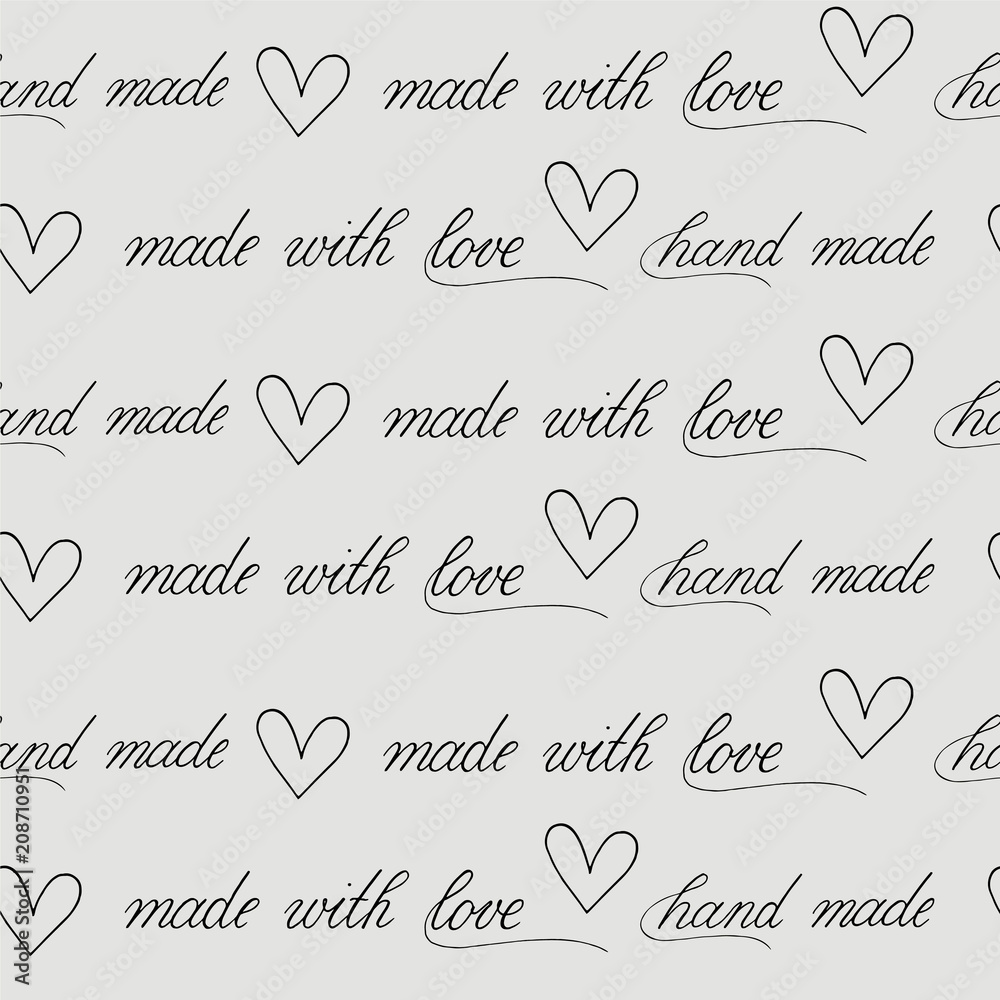 hand made made with love ha
made with love hand made
hand made made with love ha
made with love hand made
hand made made with love ha
made with love hand made
Adobe Stock | #208710951